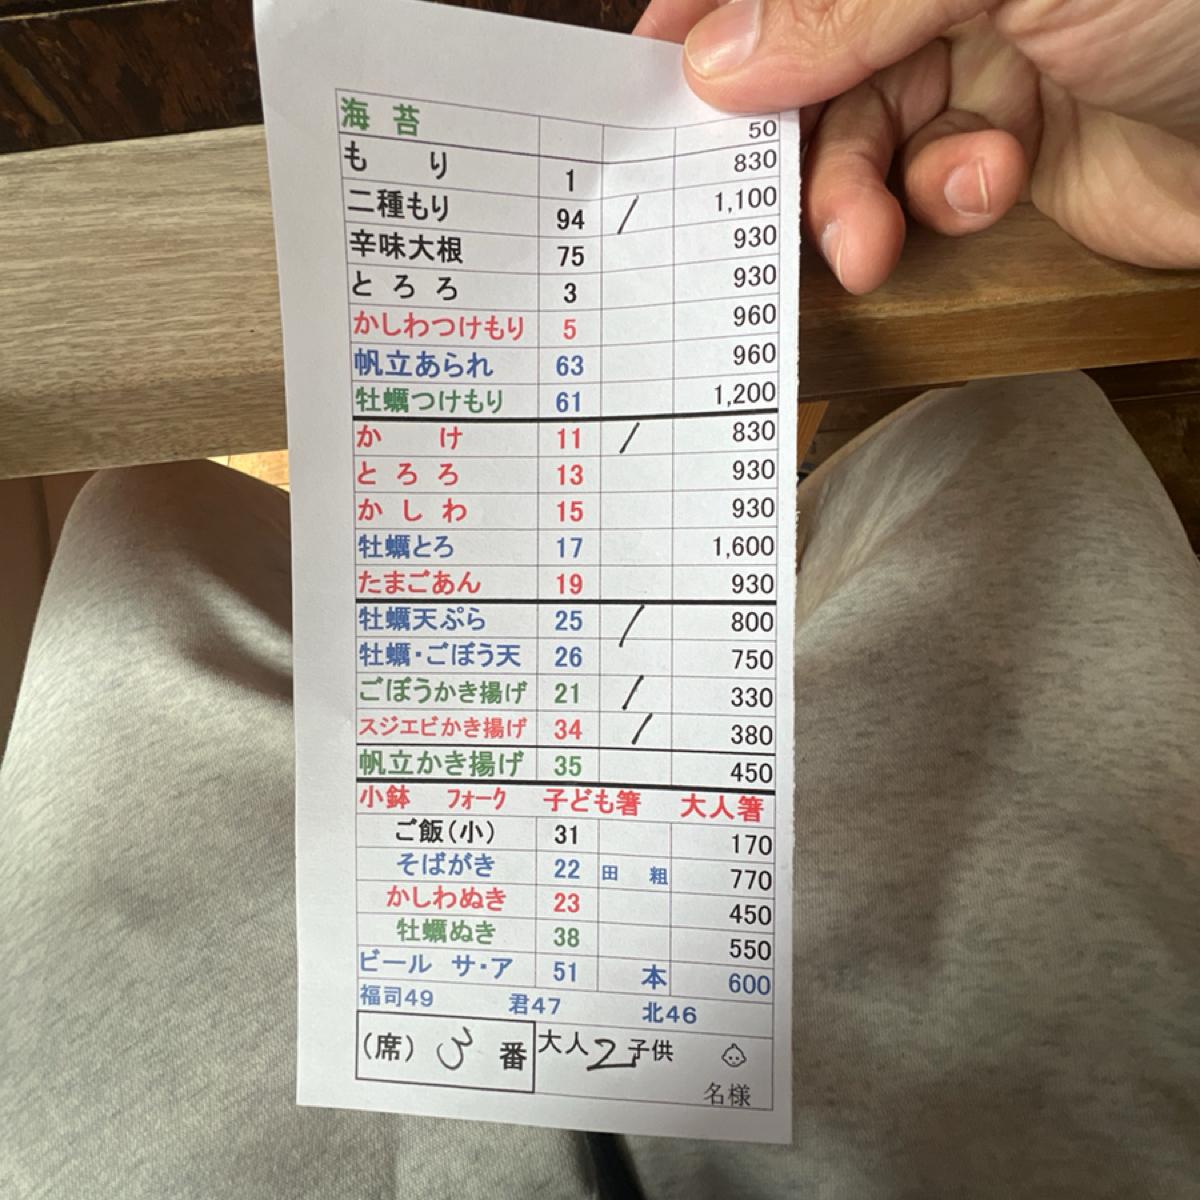 海苔 50
もり 1 830
二種もり 94 / 1,100
辛味大根 75 930
とろろ 3 930
かしわつけもり 5 960
帆立あられ 63 960
牡蠣つけもり 61 1,200
かけ 11 / 830
とろろ 13 930
かしわ 15 930
牡蠣とろ 17 1,600
たまごあん 19 930
牡蠣天ぷら 25 / 800
牡蠣・ごぼう天 26 750
ごぼうかき揚げ 21 / 330
スジエビかき揚げ 34 / 380
帆立かき揚げ 35 450
小鉢 フォーク 子ども箸 大人箸
ご飯(小) 31 170
そばがき 22 田 粗 770
かしわぬき 23 450
牡蠣ぬき 38 550
ビール サ・ア 51 本 600
福司49 君47 北46
(席) 3 番 大人2子供
名様